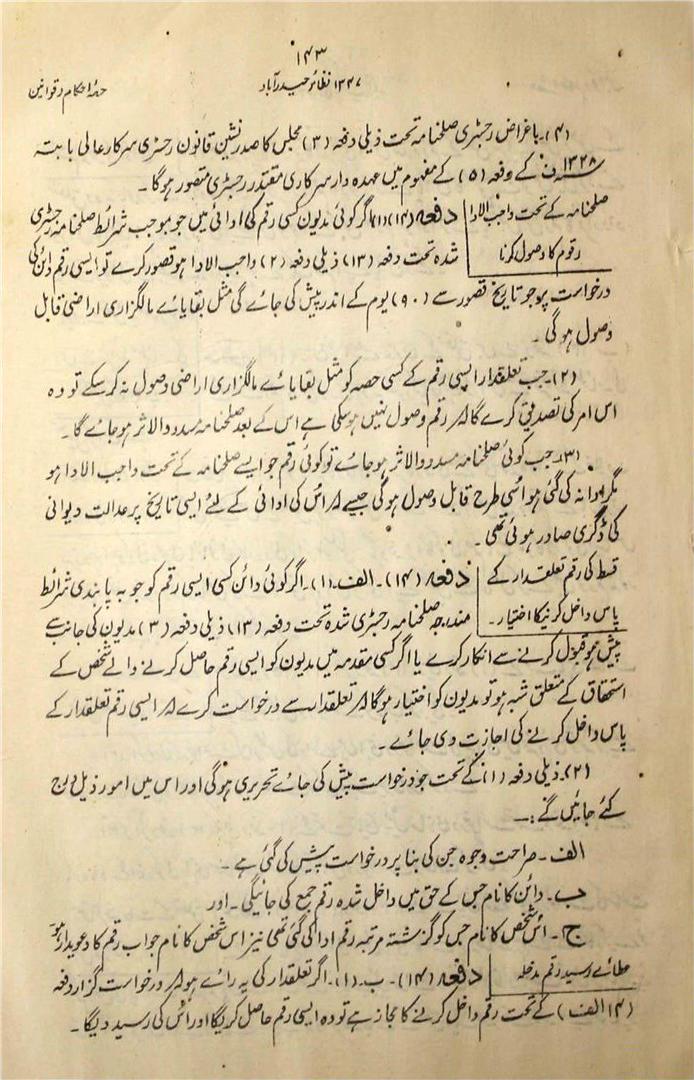 ۱۴۳
۱۳۴۷ نظائر حیدرآباد
حصۂ احکام و قوانین
(۴)۔ باغراض رجسٹری صلحنامہ تحت ذیلی دفعہ (۳) مجلس کا صدر نشین قانون رجسٹری سرکار عالی بابتہ
۱۳۲۸ ف کے دفعہ (۵) کے مفہوم میں عہدہ دار سرکاری مقتدر رجسٹری متصور ہوگا۔
صلحنامہ کے تحت واجب الادا
رقوم کا وصول کرنا
دفعہ (۱۴)(۱) اگر کوئی مدیون کسی رقم کی ادائی میں جو بموجب شرائط صلحنامہ رجسٹری
شدہ تحت دفعہ (۱۳) ذیلی دفعہ (۲) واجب الادا ہو قصور کرے تو ایسی رقم دائن کی
درخواست پر جو تاریخ قصور سے (۹۰) یوم کے اندر پیش کی جائے گی مثل بقایائے مالگزاری اراضی قابل
وصول ہوگی۔
(۲)۔ جب تعلقدار ایسی رقم کے کسی حصہ کو مثل بقایائے مالگزاری اراضی وصول نہ کرسکے تو وہ
اس امر کی تصدیق کرے گا کہ رقم وصول نہیں ہوسکی ہے اس کے بعد صلحنامہ مسدود الاثر ہوجائے گا۔
(۳)۔ جب کوئی صلحنامہ مسدود الاثر ہوجائے تو کوئی رقم جو ایسے صلحنامہ کے تحت واجب الادا ہو
مگر ادا نہ کی گئی ہو اسی طرح قابل وصول ہوگی جیسے کہ اس کی ادائی کے لئے ایسی تاریخ پر عدالت دیوانی
کی ڈگری صادر ہوئی تھی۔
قسط کی رقم تعلقدار کے
پاس داخل کرنیکا اختیار۔
دفعہ (۱۴)۔ الف۔ (۱)۔ اگر کوئی دائن کسی ایسی رقم کو جو بہ پابندی شرائط
مندرجہ صلحنامہ رجسٹری شدہ تحت دفعہ (۱۳) ذیلی دفعہ (۳) مدیون کی جانب سے
پیش ہو قبول کرنے سے انکار کرے یا اگر کسی مقدمہ میں مدیون کو ایسی رقم حاصل کرنے والے شخص کے
استحقاق کے متعلق شبہ ہو تو مدیون کو اختیار ہوگا کہ تعلقدار سے درخواست کرے کہ ایسی رقم تعلقدار کے
پاس داخل کرنے کی اجازت دی جائے۔
(۲)۔ ذیلی دفعہ (۱) کے تحت جو درخواست پیش کی جائے تحریری ہوگی اور اس میں امور ذیل درج
کئے جائیں گے:۔
الف۔ صراحت وجوہ جن کی بنا پر درخواست پیش کی گئی ہے۔
ب۔ دائن کا نام جس کے حق میں داخل شدہ رقم جمع کی جائیگی۔ اور
ج۔ اس شخص کا نام جس کو گزشتہ مرتبہ رقم ادا کی گئی تھی نیز اس شخص کا نام جو اب رقم کا دعویدار ہو
عطائے رسید رقم مدخلہ
دفعہ (۱۴)۔ ب۔ (۱)۔ اگر تعلقدار کی یہ رائے ہو کہ درخواست گزار دفعہ
(۱۴ الف) کے تحت رقم داخل کرنے کا مجاز ہے تو وہ ایسی رقم حاصل کریگا اور اس کی رسید دیگا۔